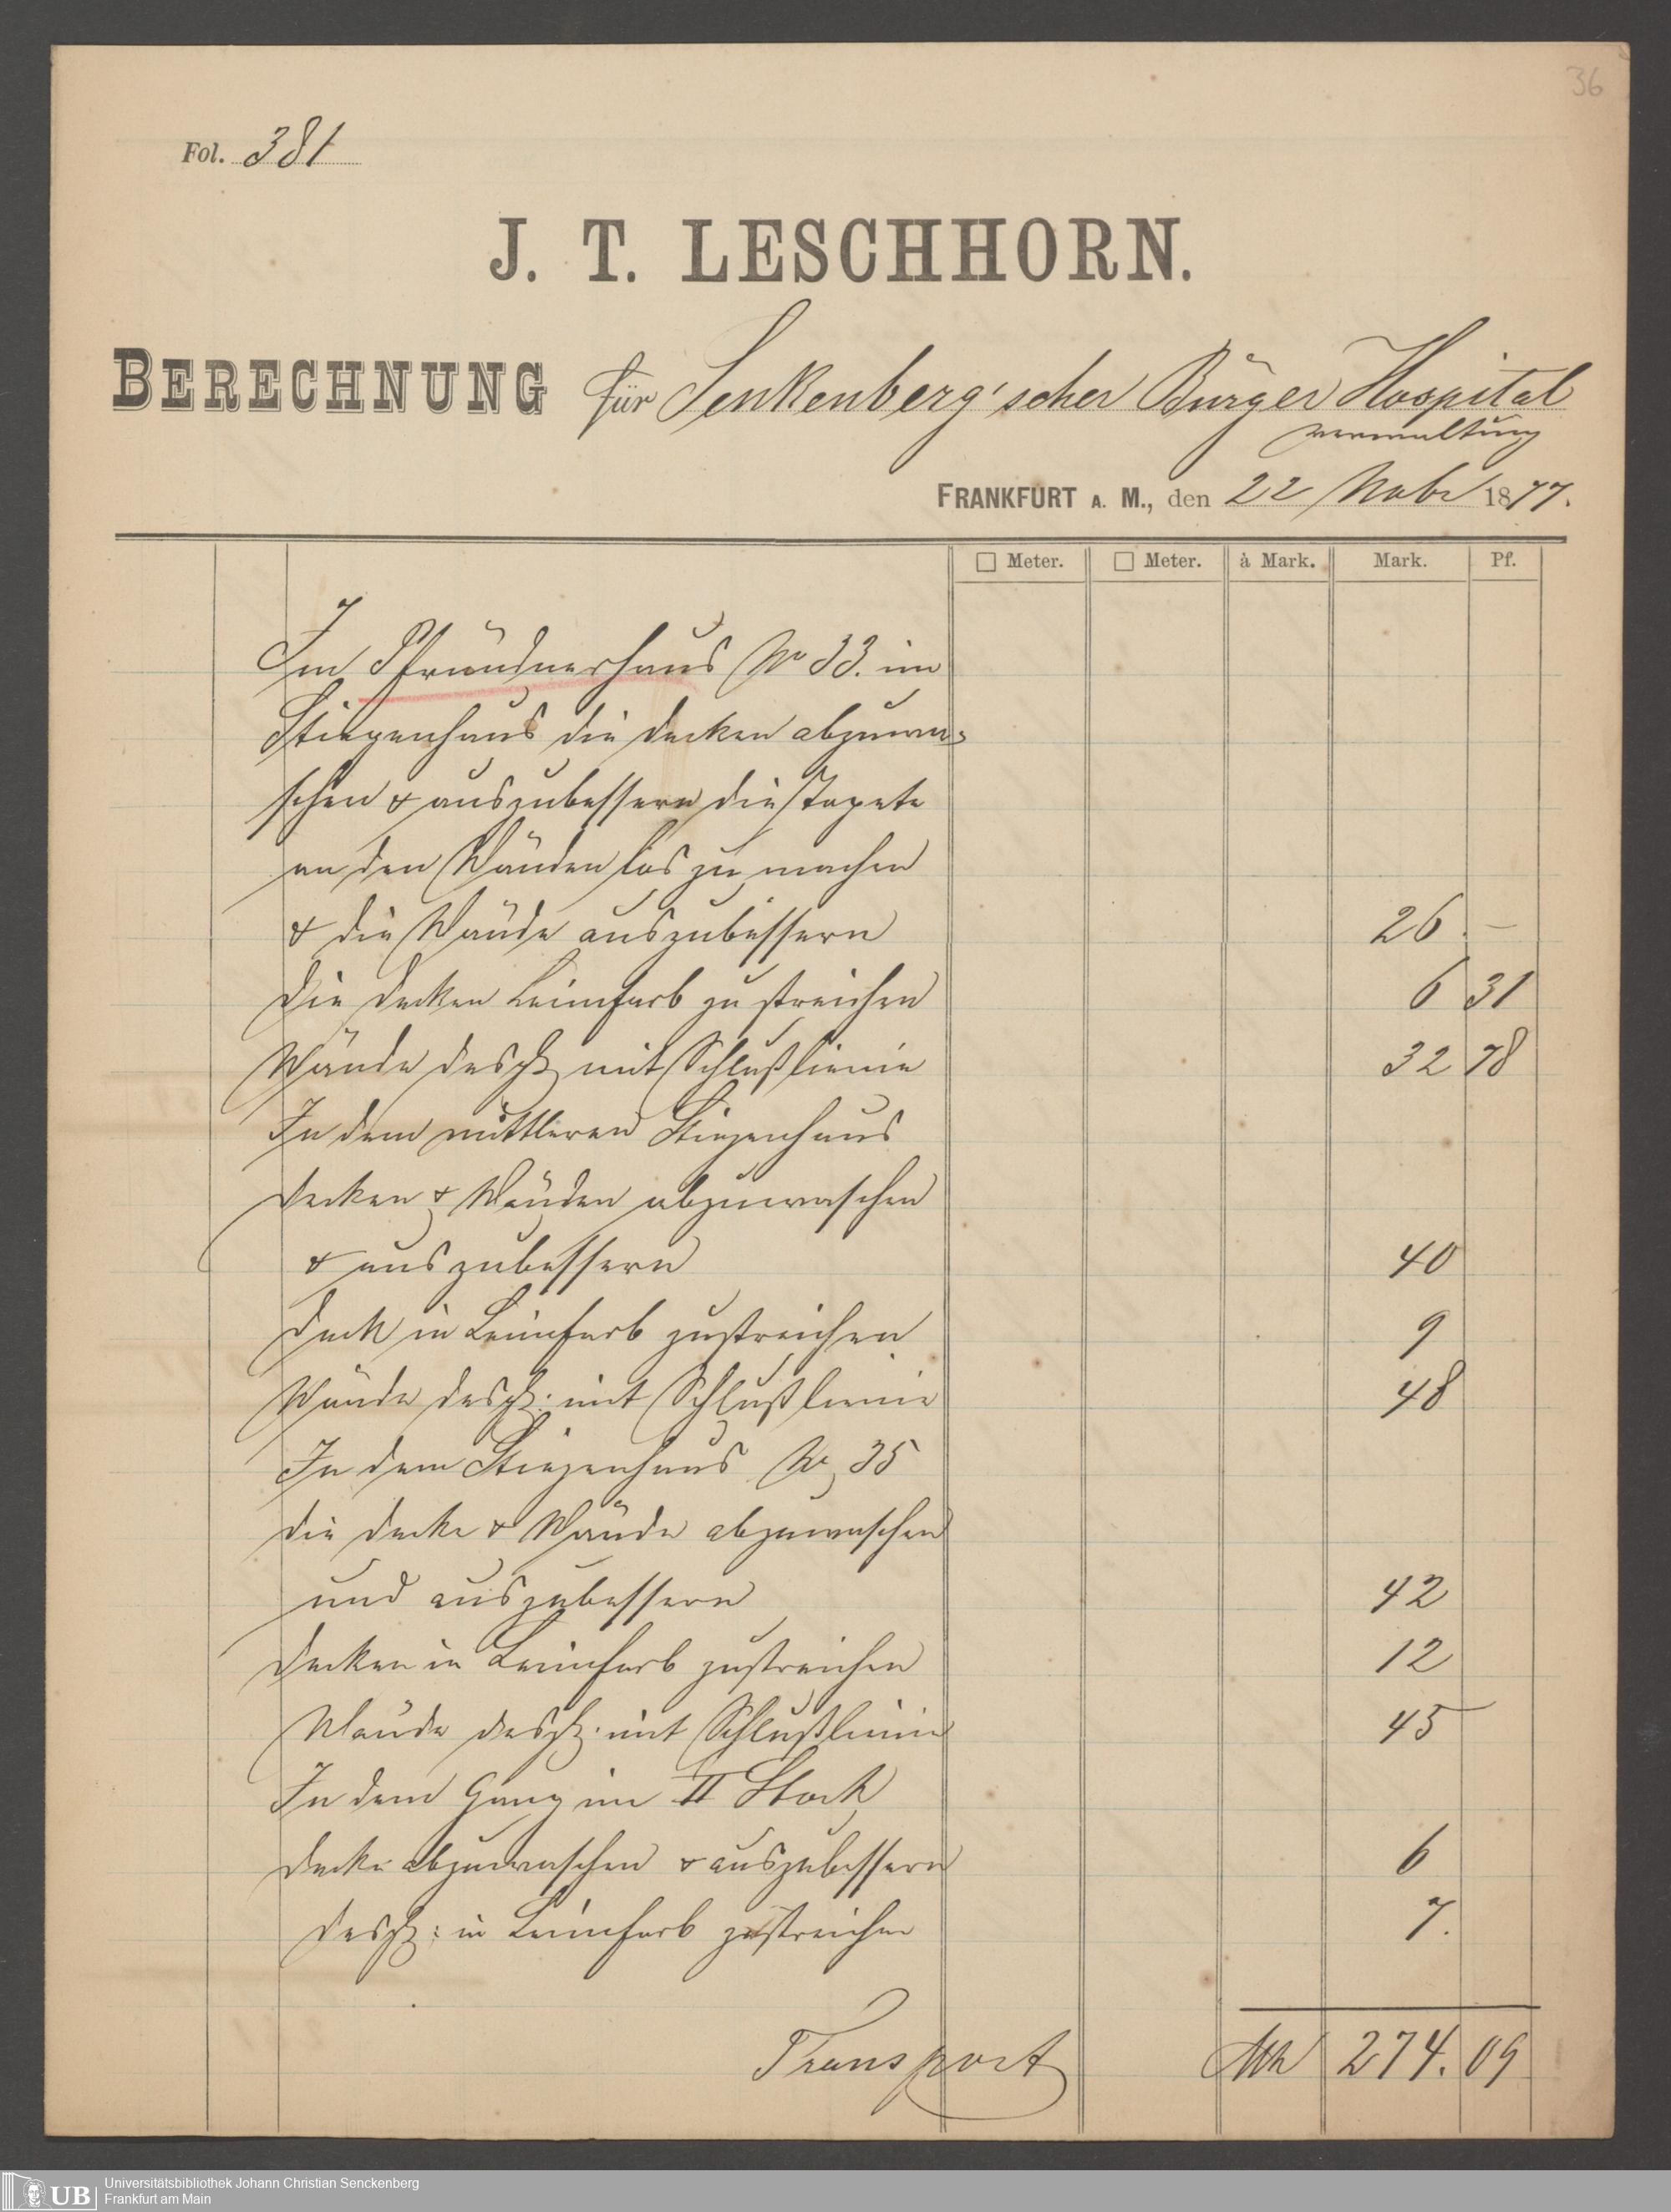 36
Fol. 381
J. T. LESCHHORN.
BERECHNUNG für Senkenberg'scher Bürger Hospital
verwaltung
FRANKFURT A. M., den 22 Nobr 1877.
□ Meter. □ Meter. à Mark. Mark. Pf.
Im Pfründnerhaus No 33. im
Stiegenhaus die Decken abzuwa-
schen & auszubessern die Tapete
an den Wänden los zu machen
& die Wände auszubessern 26. –
Die Decken Leimfarb zu streichen 6 31
Wände desgl mit Schlußlienie 32 78
In dem mittleren Stiegenhaus
Decken & Wänden abzuwaschen
& auszubessern 40
Deck in Leimfarb zustreichen 9
Wände desgl: mit Schlußlienie 48
In dem Stiegenhaus No 35
die Decke & Wände abzuwaschen
und auszubessern 42
Decken in Leimfarb zustreichen 12
Wände desgl: mit Schlußlinie 45
In dem Gang im II Stock
Decke abzuwaschen & auszubessern 6
Desgl: in Leimfarb zustreichen 7.
Transport Mk 274. 09
UB Universitätsbibliothek Johann Christian Senckenberg
Frankfurt am Main